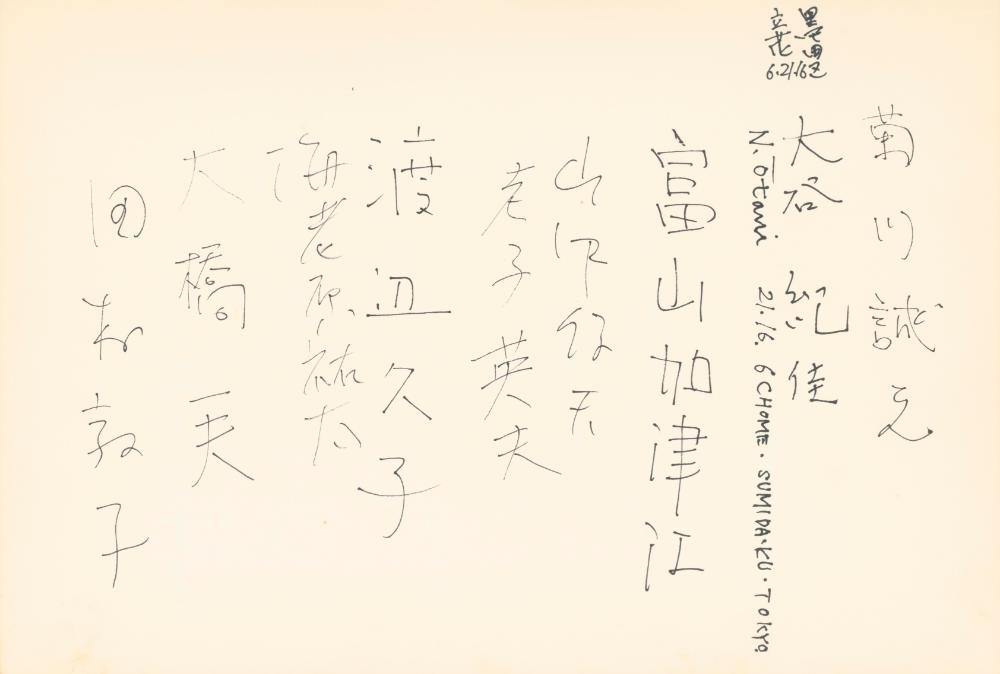 菊川誠之
墨田区
立花
6.21.16
大谷 紀佳
N. Ōtani 21.16. 6 CHOME. SUMIDA-KU. TOKYO.
富山加津江
山下
老子英夫
渡辺久子
海老原祐太
大橋一夫
田村敦子